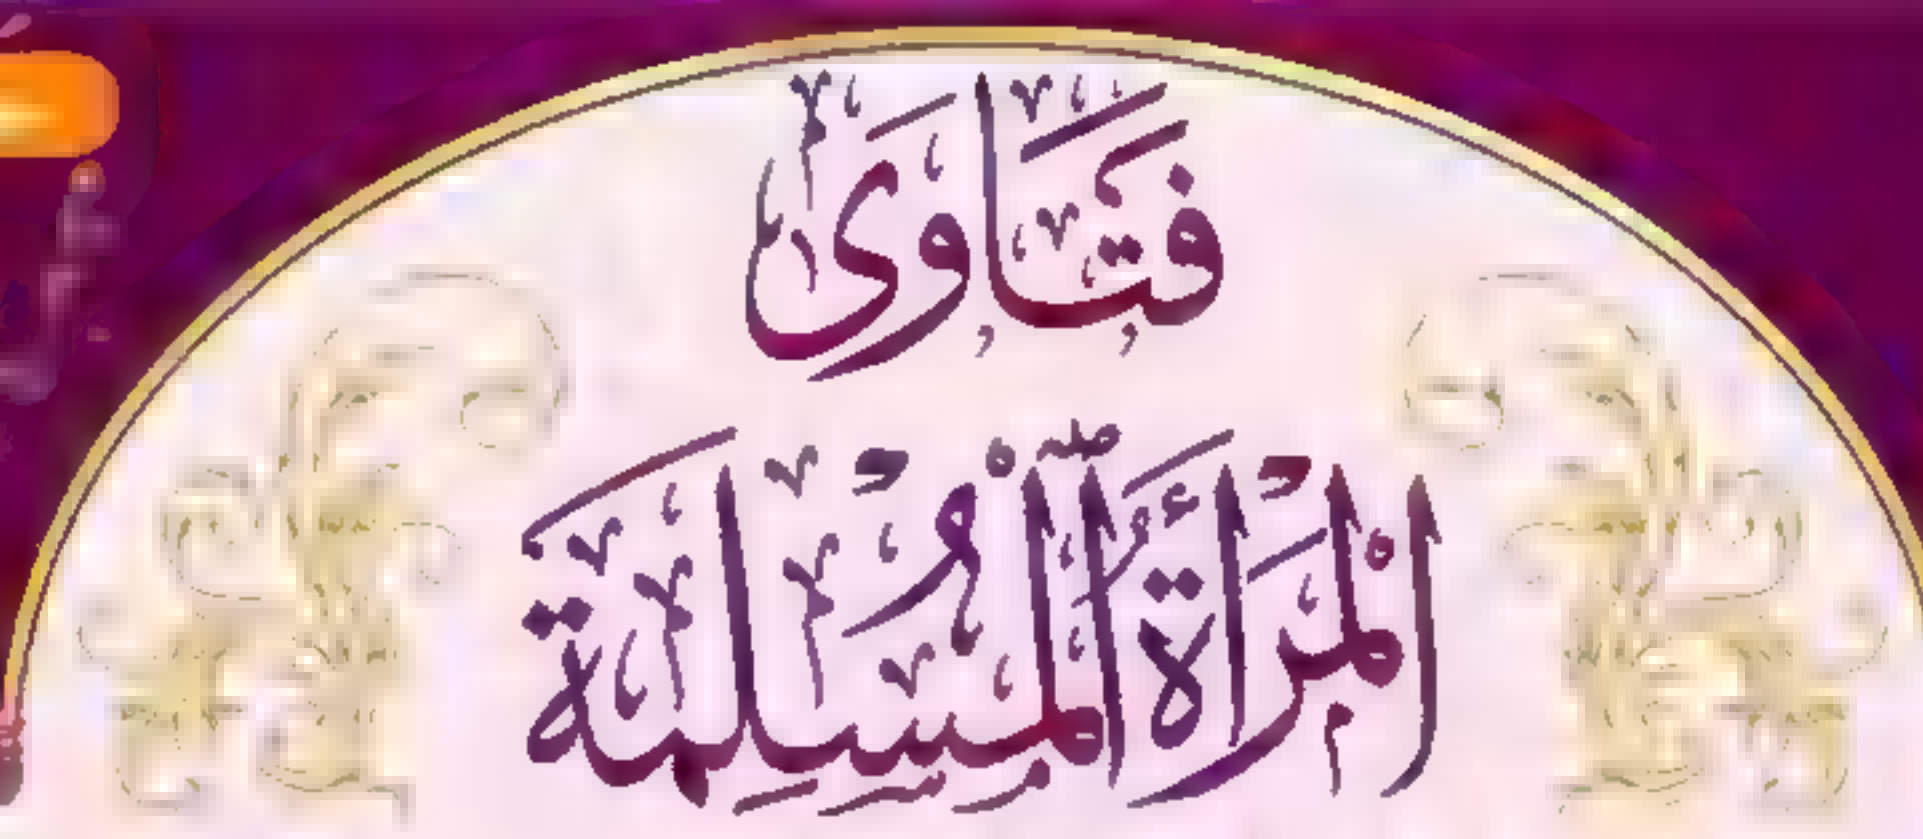 فتاوى
المرأة المسلمة